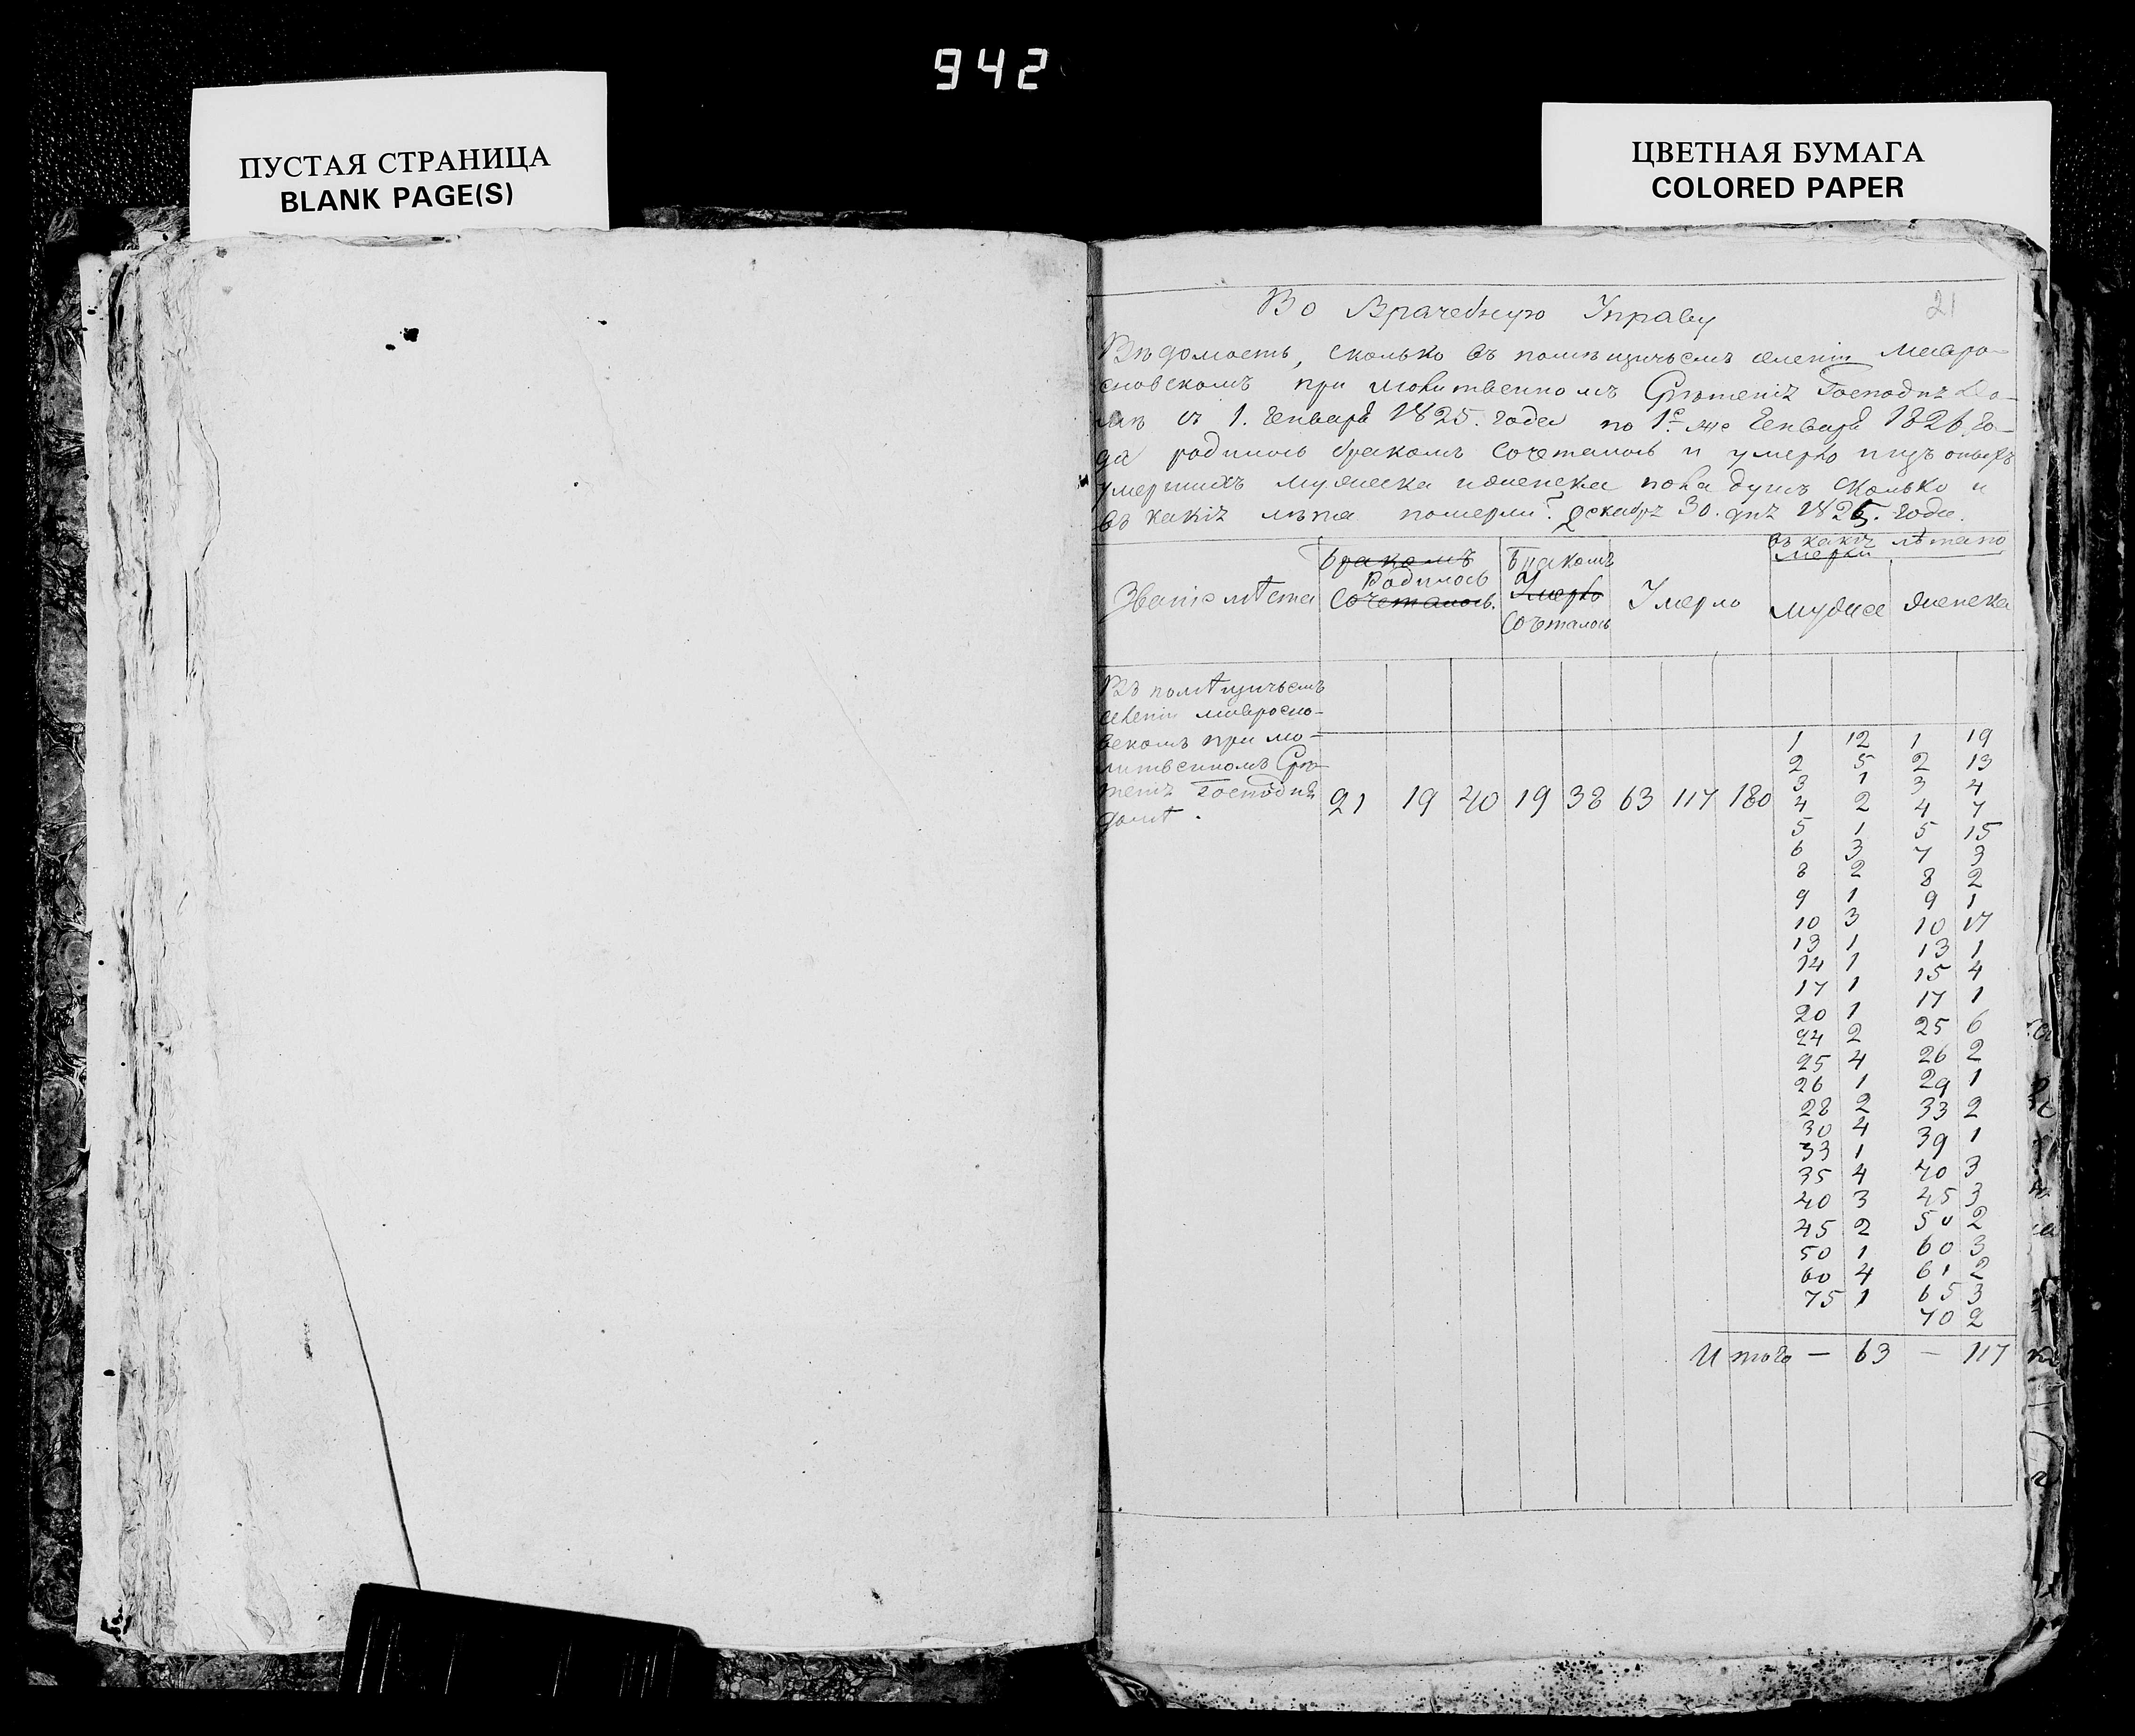 942
ПУСТАЯ СТРАНИЦА
BLANK PAGE(S)
ЦВЕТНАЯ БУМАГА
COLORED PAPER
21
Во Врачебную Управу
Вѣдомость, сколько въ помѣщичьемъ селеніи Мавро-
сновскомъ при молитвенномъ Срѣтенія Господня До-
мѣ съ 1. Генваря 1825. года по 1е же Генваря 1826 го-
да родилось бракомъ сочеталось и умерло и изъ оныхъ
умершихъ мужеска и женска пола душъ сколько и
въ какія лѣта померли. Декабря 30. дня 1825. года.
Званіе мѣста
бракомъ
Родилось
сочеталось.
Бракомъ
Умерло
сочеталось
Умерло
въ какія лѣта по
мерли
мужеска
женска
Въ помѣщичьемъ
селеніи Мавросно-
вскомъ при мо-
литвенномъ Срѣ-
тенія Господня
домѣ.
21 19 40 19 38 63 117 180
1 12 1 19
2 5 2 13
3 1 3 4
4 2 4 7
5 1 5 15
6 3 7 3
8 2 8 2
9 1 9 1
10 3 10 17
13 1 13 1
14 1 15 4
17 1 17 1
20 1 25 6
24 2 26 2
25 4 29 1
26 1 33 2
28 2 39 1
30 4 40 3
33 1 45 3
35 4 50 2
40 3 60 3
45 2 61 2
50 1 65 3
60 4 70 2
75 1
Итого — 63 — 117